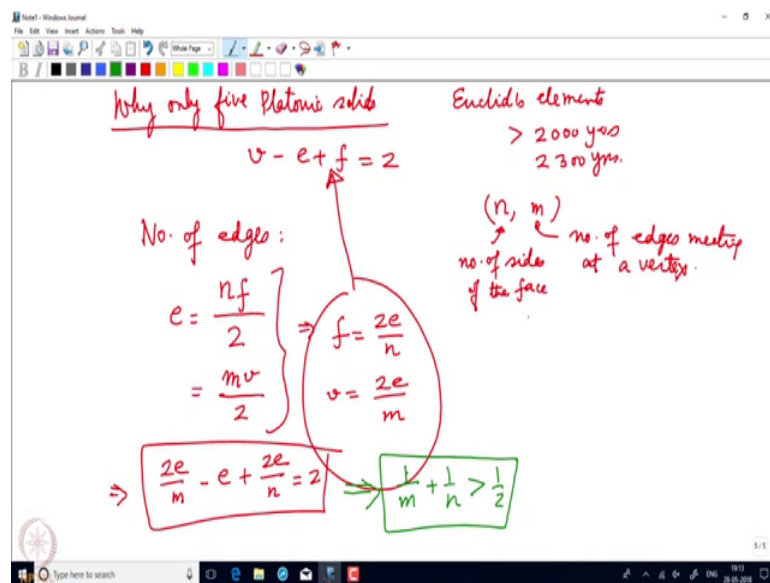 Note1 - Windows Journal
File Edit View Insert Actions Tools Help
Whole Page
B I
Why only five Platonic solids
v - e + f = 2
Euclid's elements
> 2000 yrs
2300 yrs.
(n, m)
no. of sides
of the face
no. of edges meeting
at a vertex.
No. of edges:
e = nf/2
= mv/2
⇒ f = 2e/n
v = 2e/m
⇒ 2e/m - e + 2e/n = 2 ⇒ 1/m + 1/n > 1/2
5/5
Type here to search
ENG
19:13
28-05-2018